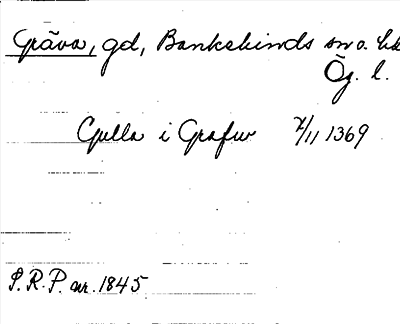 Gräva, gd, Bankekinds sn o. hd
Ög. l.
Gulla i Grafw 7/11 1369
S.R.P. nr. 1845